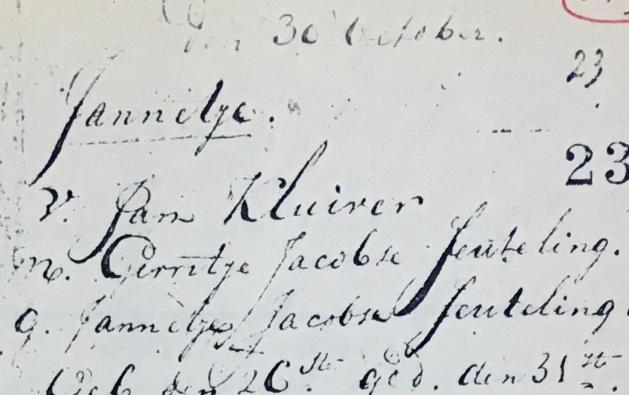 den 30 October.
23
Jannetje.
23
V. Jan Kluiver
M. Gerritje Jacobse Feuteling.
G. Jannetje Jacobse Feuteling
Geb den 26ste ged. den 31ste.